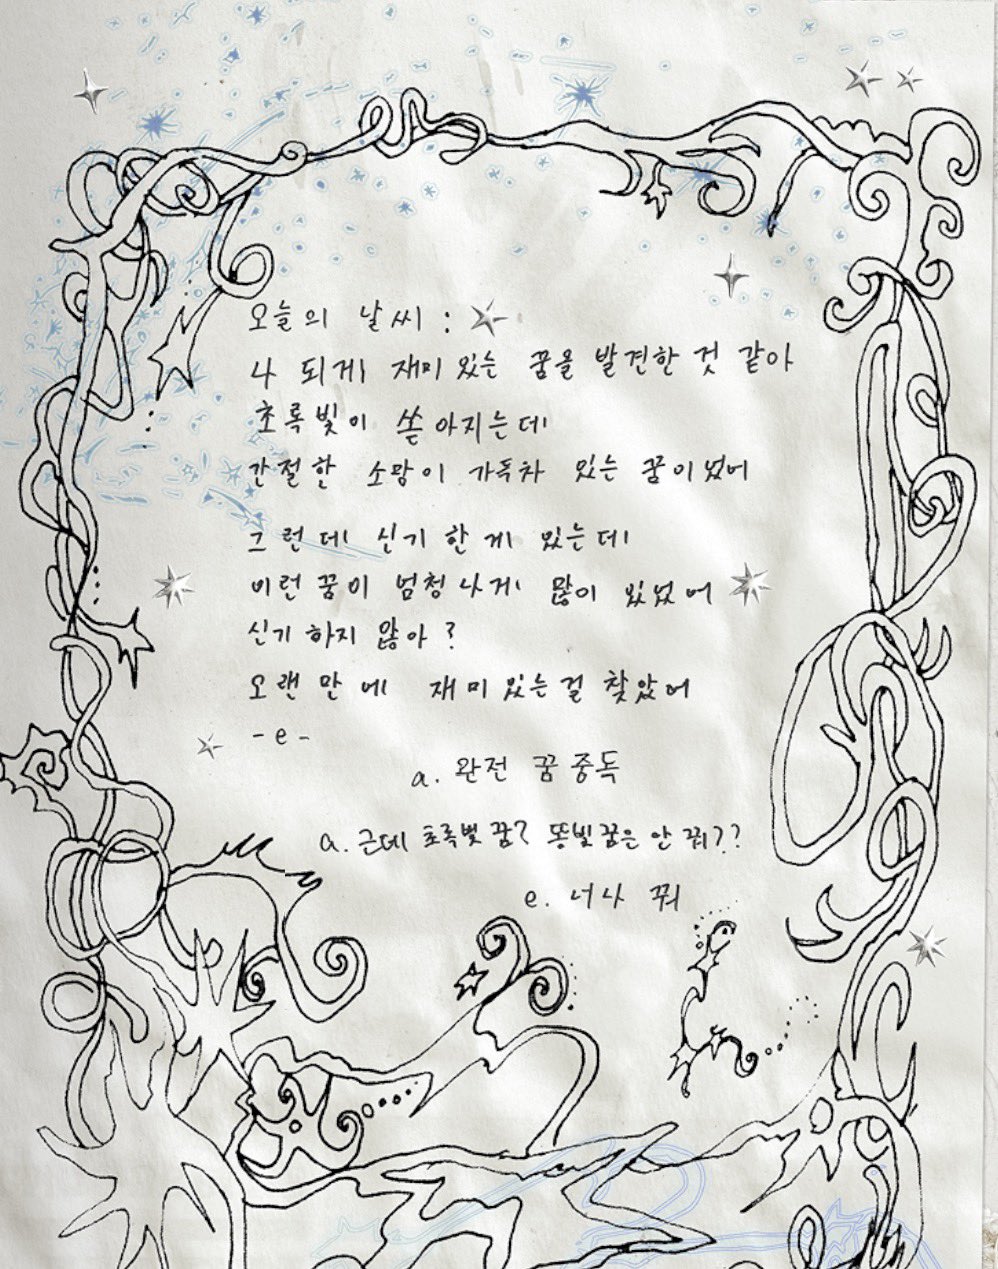 오늘의 날씨 :
나 되게 재미있는 꿈을 발견한 것 같아
초록빛이 쏟아지는데
간절한 소망이 가득차 있는 꿈이었어
그런데 신기한게 있는데
이런 꿈이 엄청나게 많이 있었어
신기하지 않아?
오랜만에 재미있는걸 찾았어
- e -
a. 완전 꿈 중독
a. 근데 초록빛 꿈? 똥빛꿈은 안 꿔??
e. 너나 꿔